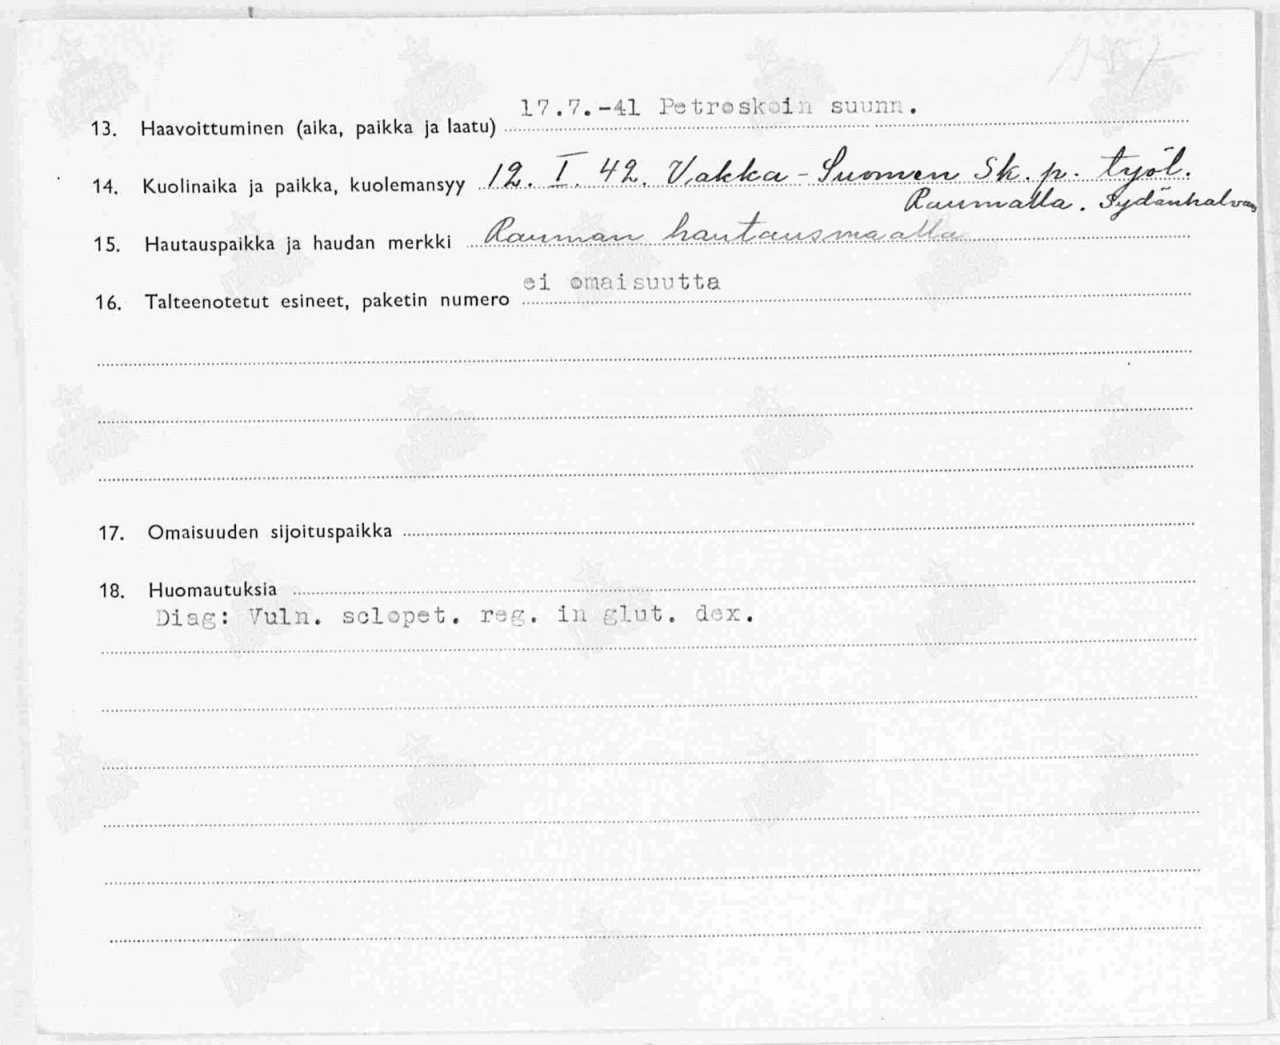 17.7.-41 Petroskoin suunn.
13. Haavoittuminen (aika, paikka ja laatu)
14. Kuolinaika ja paikka, kuolemansyy 12. I. 42. Vakka-Suomen Sk. p. työl.
Raumalla. Sydänhalvaus
15. Hautauspaikka ja haudan merkki Rauman hautausmaalla
ei omaisuutta
16. Talteenotetut esineet, paketin numero
17. Omaisuuden sijoituspaikka
18. Huomautuksia
Diag: Vuln. sclopet. reg. in glut. dex.